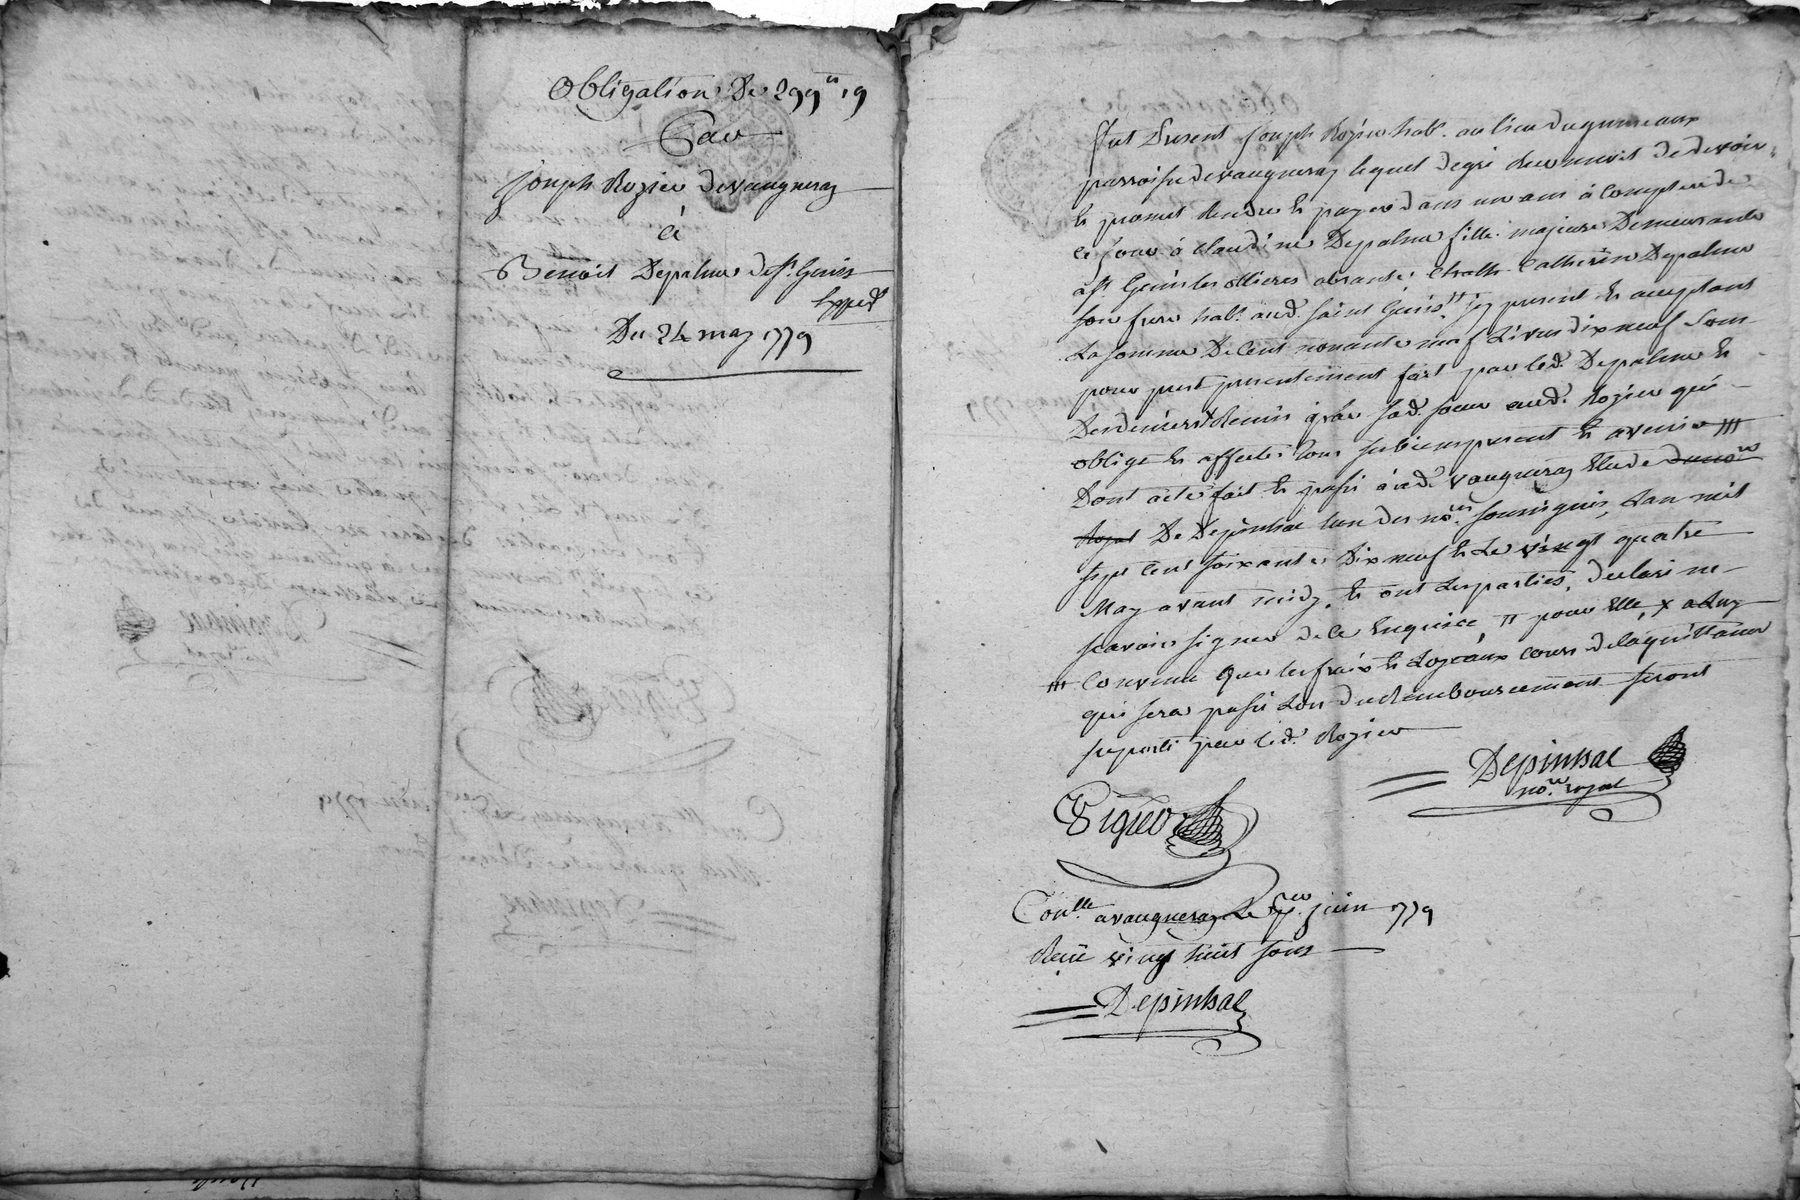 Obligation De 299ᵗᵗ 19
Par
Joseph Rozier de vaugneray
à
Benoit Depalme de St. Genis
Exped.
Du 24 may 1779
Fut Present Joseph Rozier hab. au lieu
parroisse de vaugneray lequel de gré Reconnoit de devoir
Et promet Rendre Et payer dans un an à Compter de
ce jour à Claudine Depalme fille majeure Demeurante
à St. Genis les ollieres absante Catherin Depalme
son frere hab. aud. saint Genis ıı icy present Et acceptant
La somme De Cent nonante neuf Livres dix neuf sous
pour prest presentement fait par led. Depalme Et
Des deniers Remis par sad. soeur aud. Rozier qui
oblige Et affecte tous ses biens present Et avenir ııı
Dont acte fait Et passé aud. vaugneray Etude du no.re
Royal De Depinhac L'un des no.res soussignés, L'an mil
sept Cent soixante Dix neuf Et Le vingt quatre
May avant midy, Et ont Les parties, declaré ne
scavoir signer de ce Enquise, ıı pour Elle, x
ııı Convenu que les fraix Et Loyeaux cours de la quittance
qui sera passé Lors du Remboursement seront
suporté par led. Rozier
Depinhac
no.re royal
Viguer
Con.lle a vaugneray Le juin 1779
Reçu vingt huit sous
Depinhac